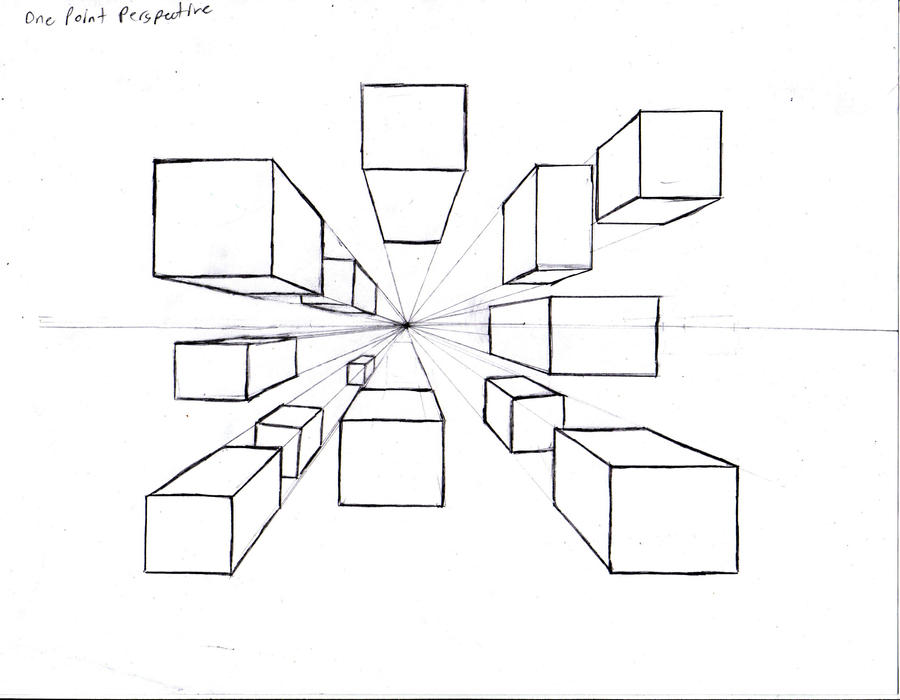 One Point Perspective